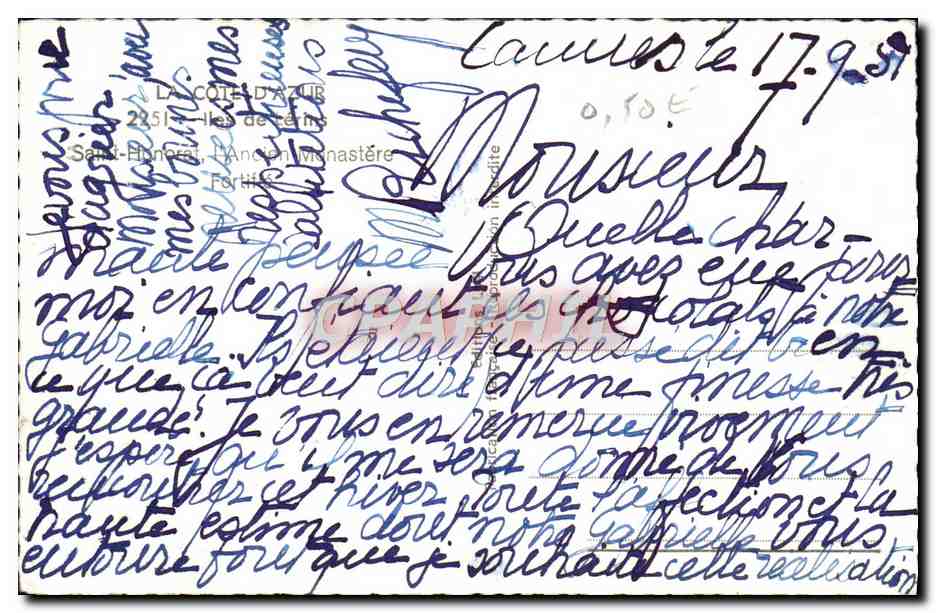 Cannes le 17.9.51
0,50 €
LA COTE D'AZUR
2251 - Iles de Lérins
Saint-Honorat, l'Ancien Monastère
Fortifié
Monsieur
Quelle char-
mante pensée vous avez eue pour
moi en confiant ces chocolats à notre
Gabrielle. Ils étaient
ce que ça veut dire d'une finesse très
grande. Je vous en remercie vivement
J'espère qu'il me sera donné de vous
rencontrer cet hiver, toute l'affection et la
haute estime dont notre Gabrielle vous
entoure font que je souhaite cette réalisation
Je vous prie
d'agréer
Monsieur avec
mes bons
sentiments
respectueuses
salutations
Editions
Fabrication française - Reproduction interdite